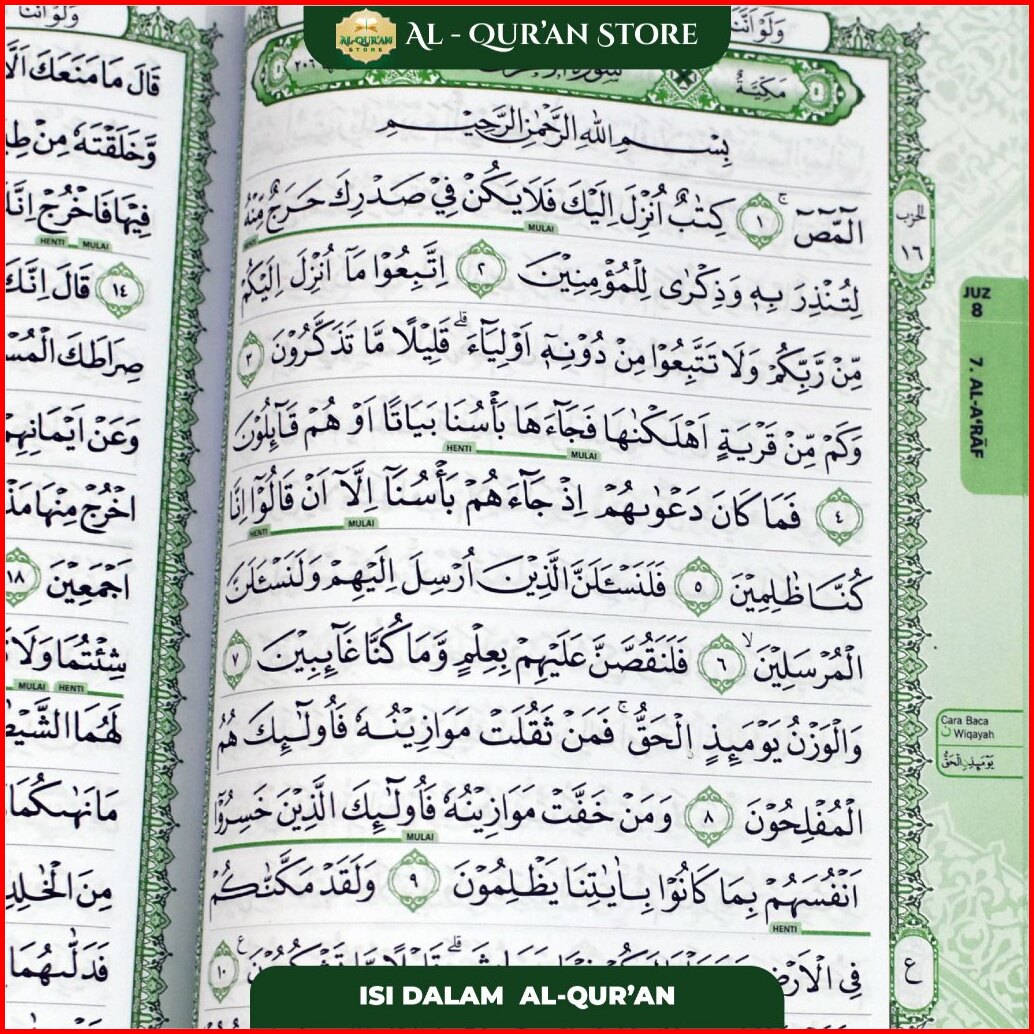 AL-QUR'AN STORE
AL - QUR'AN STORE
وَلَوْ اَنَّنَا
مَكِّيَّةٌ
بِسْمِ اللّٰهِ الرَّحْمٰنِ الرَّحِيْمِ
الۤمّۤصۤ ۚ ١ كِتٰبٌ اُنْزِلَ اِلَيْكَ فَلَا يَكُنْ فِيْ صَدْرِكَ حَرَجٌ مِّنْهُ
MULAI
لِتُنْذِرَ بِهٖ وَذِكْرٰى لِلْمُؤْمِنِيْنَ ٢ اِتَّبِعُوْا مَآ اُنْزِلَ اِلَيْكُمْ
مِّنْ رَّبِّكُمْ وَلَا تَتَّبِعُوْا مِنْ دُوْنِهٖٓ اَوْلِيَاۤءَ ۗ قَلِيْلًا مَّا تَذَكَّرُوْنَ ٣
وَكَمْ مِّنْ قَرْيَةٍ اَهْلَكْنٰهَا فَجَاۤءَهَا بَأْسُنَا بَيَاتًا اَوْ هُمْ قَاۤىِٕلُوْنَ
HENTI MULAI
٤ فَمَا كَانَ دَعْوٰىهُمْ اِذْ جَاۤءَهُمْ بَأْسُنَآ اِلَّآ اَنْ قَالُوْٓا اِنَّا
HENTI MULAI
كُنَّا ظٰلِمِيْنَ ٥ فَلَنَسْـَٔلَنَّ الَّذِيْنَ اُرْسِلَ اِلَيْهِمْ وَلَنَسْـَٔلَنَّ
الْمُرْسَلِيْنَ ۙ ٦ فَلَنَقُصَّنَّ عَلَيْهِمْ بِعِلْمٍ وَّمَا كُنَّا غَاۤىِٕبِيْنَ ٧
وَالْوَزْنُ يَوْمَىِٕذِ ِۨالْحَقُّ ۚ فَمَنْ ثَقُلَتْ مَوَازِيْنُهٗ فَاُولٰۤىِٕكَ هُمُ
الْمُفْلِحُوْنَ ٨ وَمَنْ خَفَّتْ مَوَازِيْنُهٗ فَاُولٰۤىِٕكَ الَّذِيْنَ خَسِرُوْٓا
MULAI
اَنْفُسَهُمْ بِمَا كَانُوْا بِاٰيٰتِنَا يَظْلِمُوْنَ ٩ وَلَقَدْ مَكَّنّٰكُمْ
HENTI
فِى الْاَرْضِ
١٠
الحزب
١٦
ع
JUZ
8
7. AL-A'RĀF
Cara Baca
Wiqayah
يَوْمَىِٕذِنِ الْحَقُّ
وَلَوْ اَنَّنَا
قَالَ مَا مَنَعَكَ
وَّخَلَقْتَهٗ مِنْ
فِيْهَا فَاخْرُجْ
HENTI MULAI
١٤ قَالَ اِنَّكَ
صِرَاطَكَ
وَعَنْ اَيْمَانِهِمْ
اخْرُجْ مِنْهَا
اَجْمَعِيْنَ ١٨
شِئْتُمَا وَلَا
MULAI HENTI
لَهُمَا
مَا نَهٰىكُمَا
مِنَ
فَدَلّٰىهُمَا
ISI DALAM AL-QUR'AN